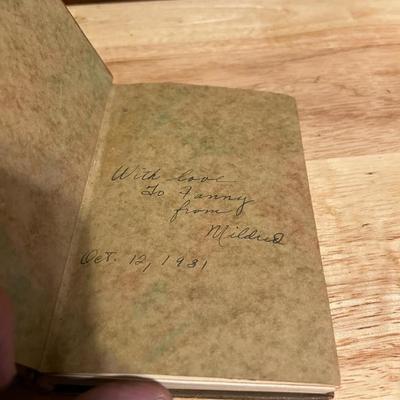 With love
To Fanny
from
Mildred
Oct. 12, 1931